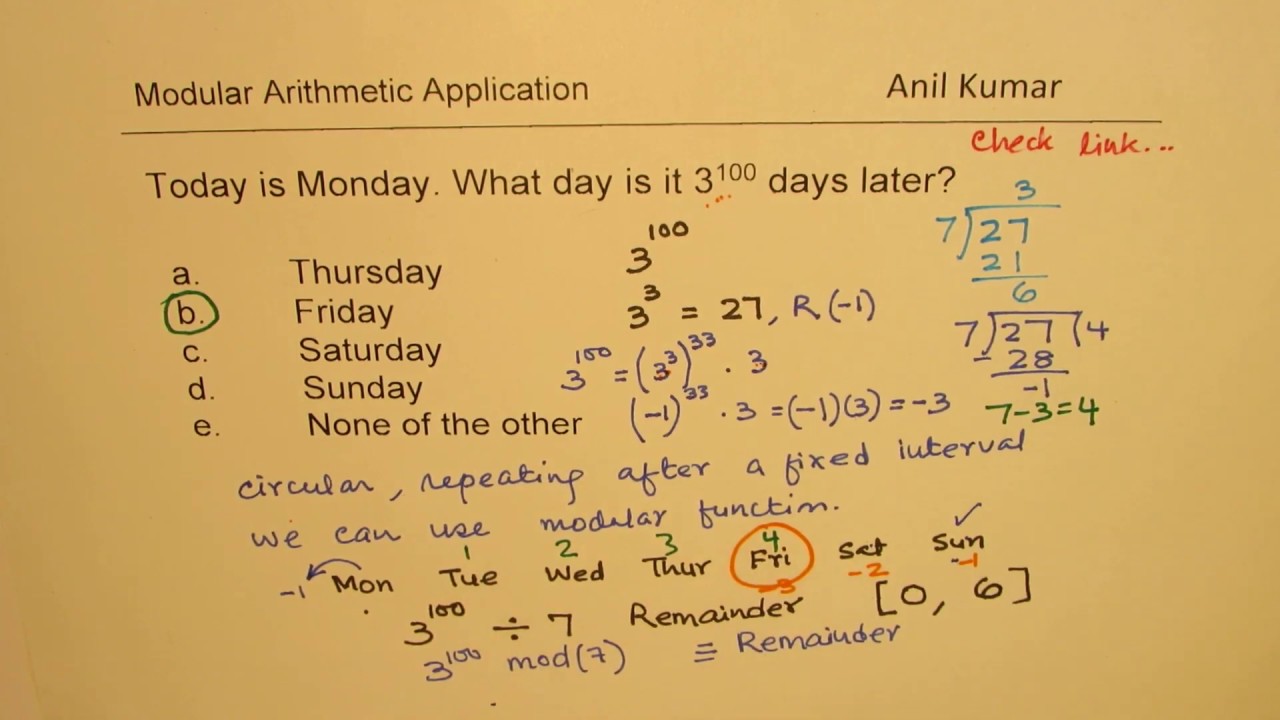 Modular Arithmetic Application Anil Kumar
Check link...
Today is Monday. What day is it 3^100 days later?
a. Thursday
b. Friday
c. Saturday
d. Sunday
e. None of the other
3^100
3^3 = 27, R(-1)
3^100 = (3^3)^33 . 3
(-1)^33 . 3 = (-1)(3) = -3
3
7)27
21
6
7)27(4
- 28
-1
7-3=4
circular, repeating after a fixed interval
we can use modular function.
1 2 3 4 ✓
-1 Mon Tue Wed Thur Fri Sat Sun
-3 -2 -1
3^100 ÷ 7 Remainder [0, 6]
3^100 mod(7) ≡ Remainder